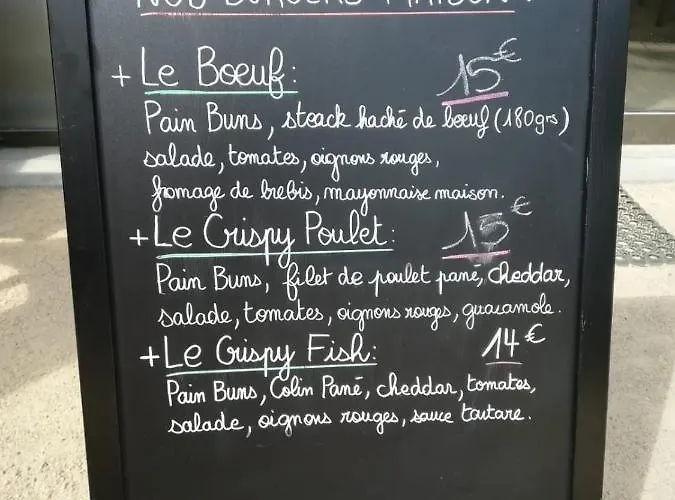 NOS BURGERS MAISON :
+ Le Boeuf : 15€
Pain Buns, steack haché de boeuf (180grs)
salade, tomates, oignons rouges,
fromage de brebis, mayonnaise maison.
+ Le Crispy Poulet : 15€
Pain Buns, filet de poulet pané, cheddar,
salade, tomates, oignons rouges, guacamole.
+ Le Crispy Fish : 14€
Pain Buns, Colin Pané, cheddar, tomates,
salade, oignons rouges, sauce tartare.